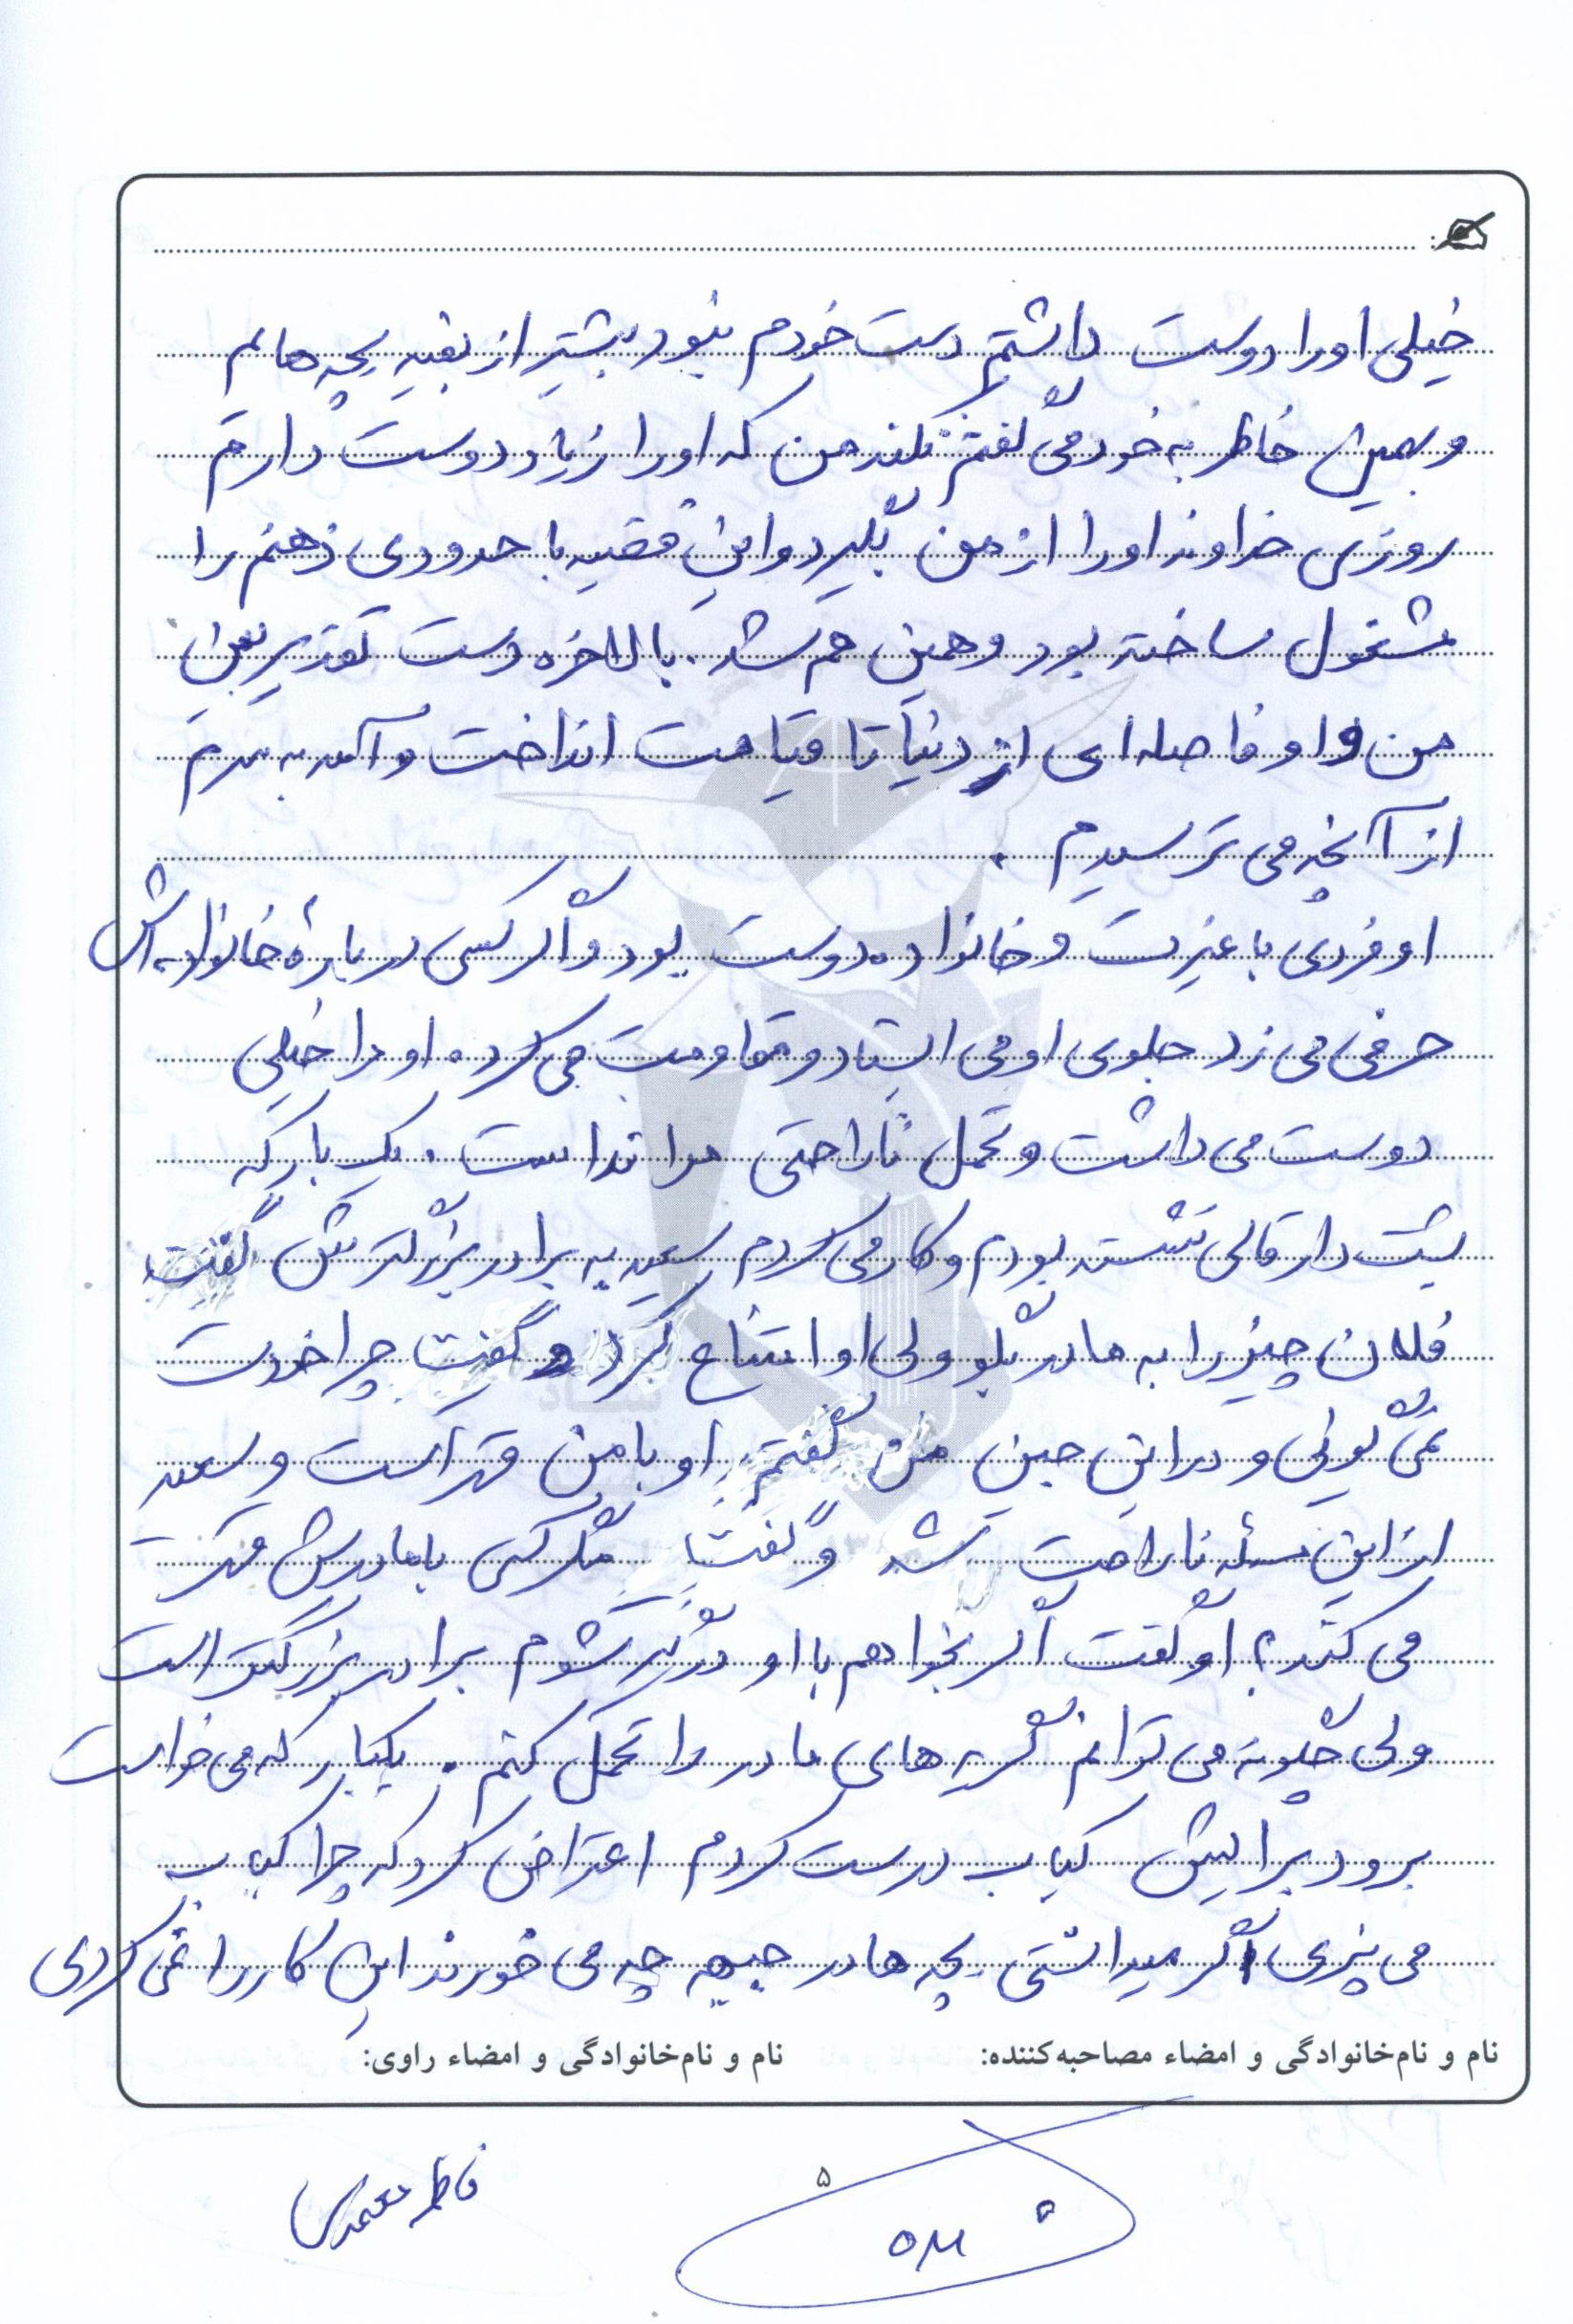 خیلی او را دوست داشتم دست خودم نبود بیشتر از بقیه بچه هایم
و بهمین خاطر به خود می گفتم نکند من که او را زیاد دوست دارم
روزی خداوند او را از من بگیرد و این قضیه تا حدودی ذهنم را
مشغول ساخته بود و همین هم شد. بالاخره دست تقدیر بین
من و او فاصله ای از دنیا تا قیامت انداخت و آمد به سرم
از آنچه می ترسیدم .
او فردی با غیرت و خانواده دوست بود و اگر کسی درباره خانواده اش
حرفی می زد جلوی او می ایستاد و مقاومت می کرد. او مرا خیلی
دوست می داشت و تحمل ناراحتی مرا نداشت . یک بار که
پشت دار قالی نشسته بودم و کار می کردم سعید به برادر بزرگترش گفت
فلان چیز را به مادر بگو ولی او امتناع کرد و گفت چرا خودت
نمی گوئی و در این حین من گفتم او با من قهر است و سعید
از این مسئله ناراحت شد و گفت مگر کسی با مادرش قهر
می کند؟ او گفت اگر بخواهم با او درگیر شوم برادر بزرگتر است
ولی چگونه می توانم گریه های مادر را تحمل کنم . یکبار که می خواست
برود برایش کباب درست کردم اعتراض کرد که چرا کباب
می پزی اگر میدانستی بچه ها در جبهه چه می خورند این کار را نمی کردی
نام و نام‌خانوادگی و امضاء مصاحبه‌کننده: نام و نام‌خانوادگی و امضاء راوی:
۵